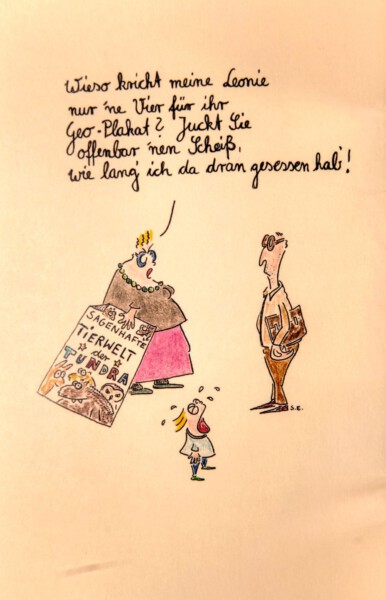 Wieso kricht meine Leonie
nur 'ne Vier für ihr
Geo-Plakat? Juckt Sie
offenbar 'nen Scheiß,
wie lang' ich da dran gesessen hab'!
SAGENHAFTE
TIERWELT
der
TUNDRA
S.E.